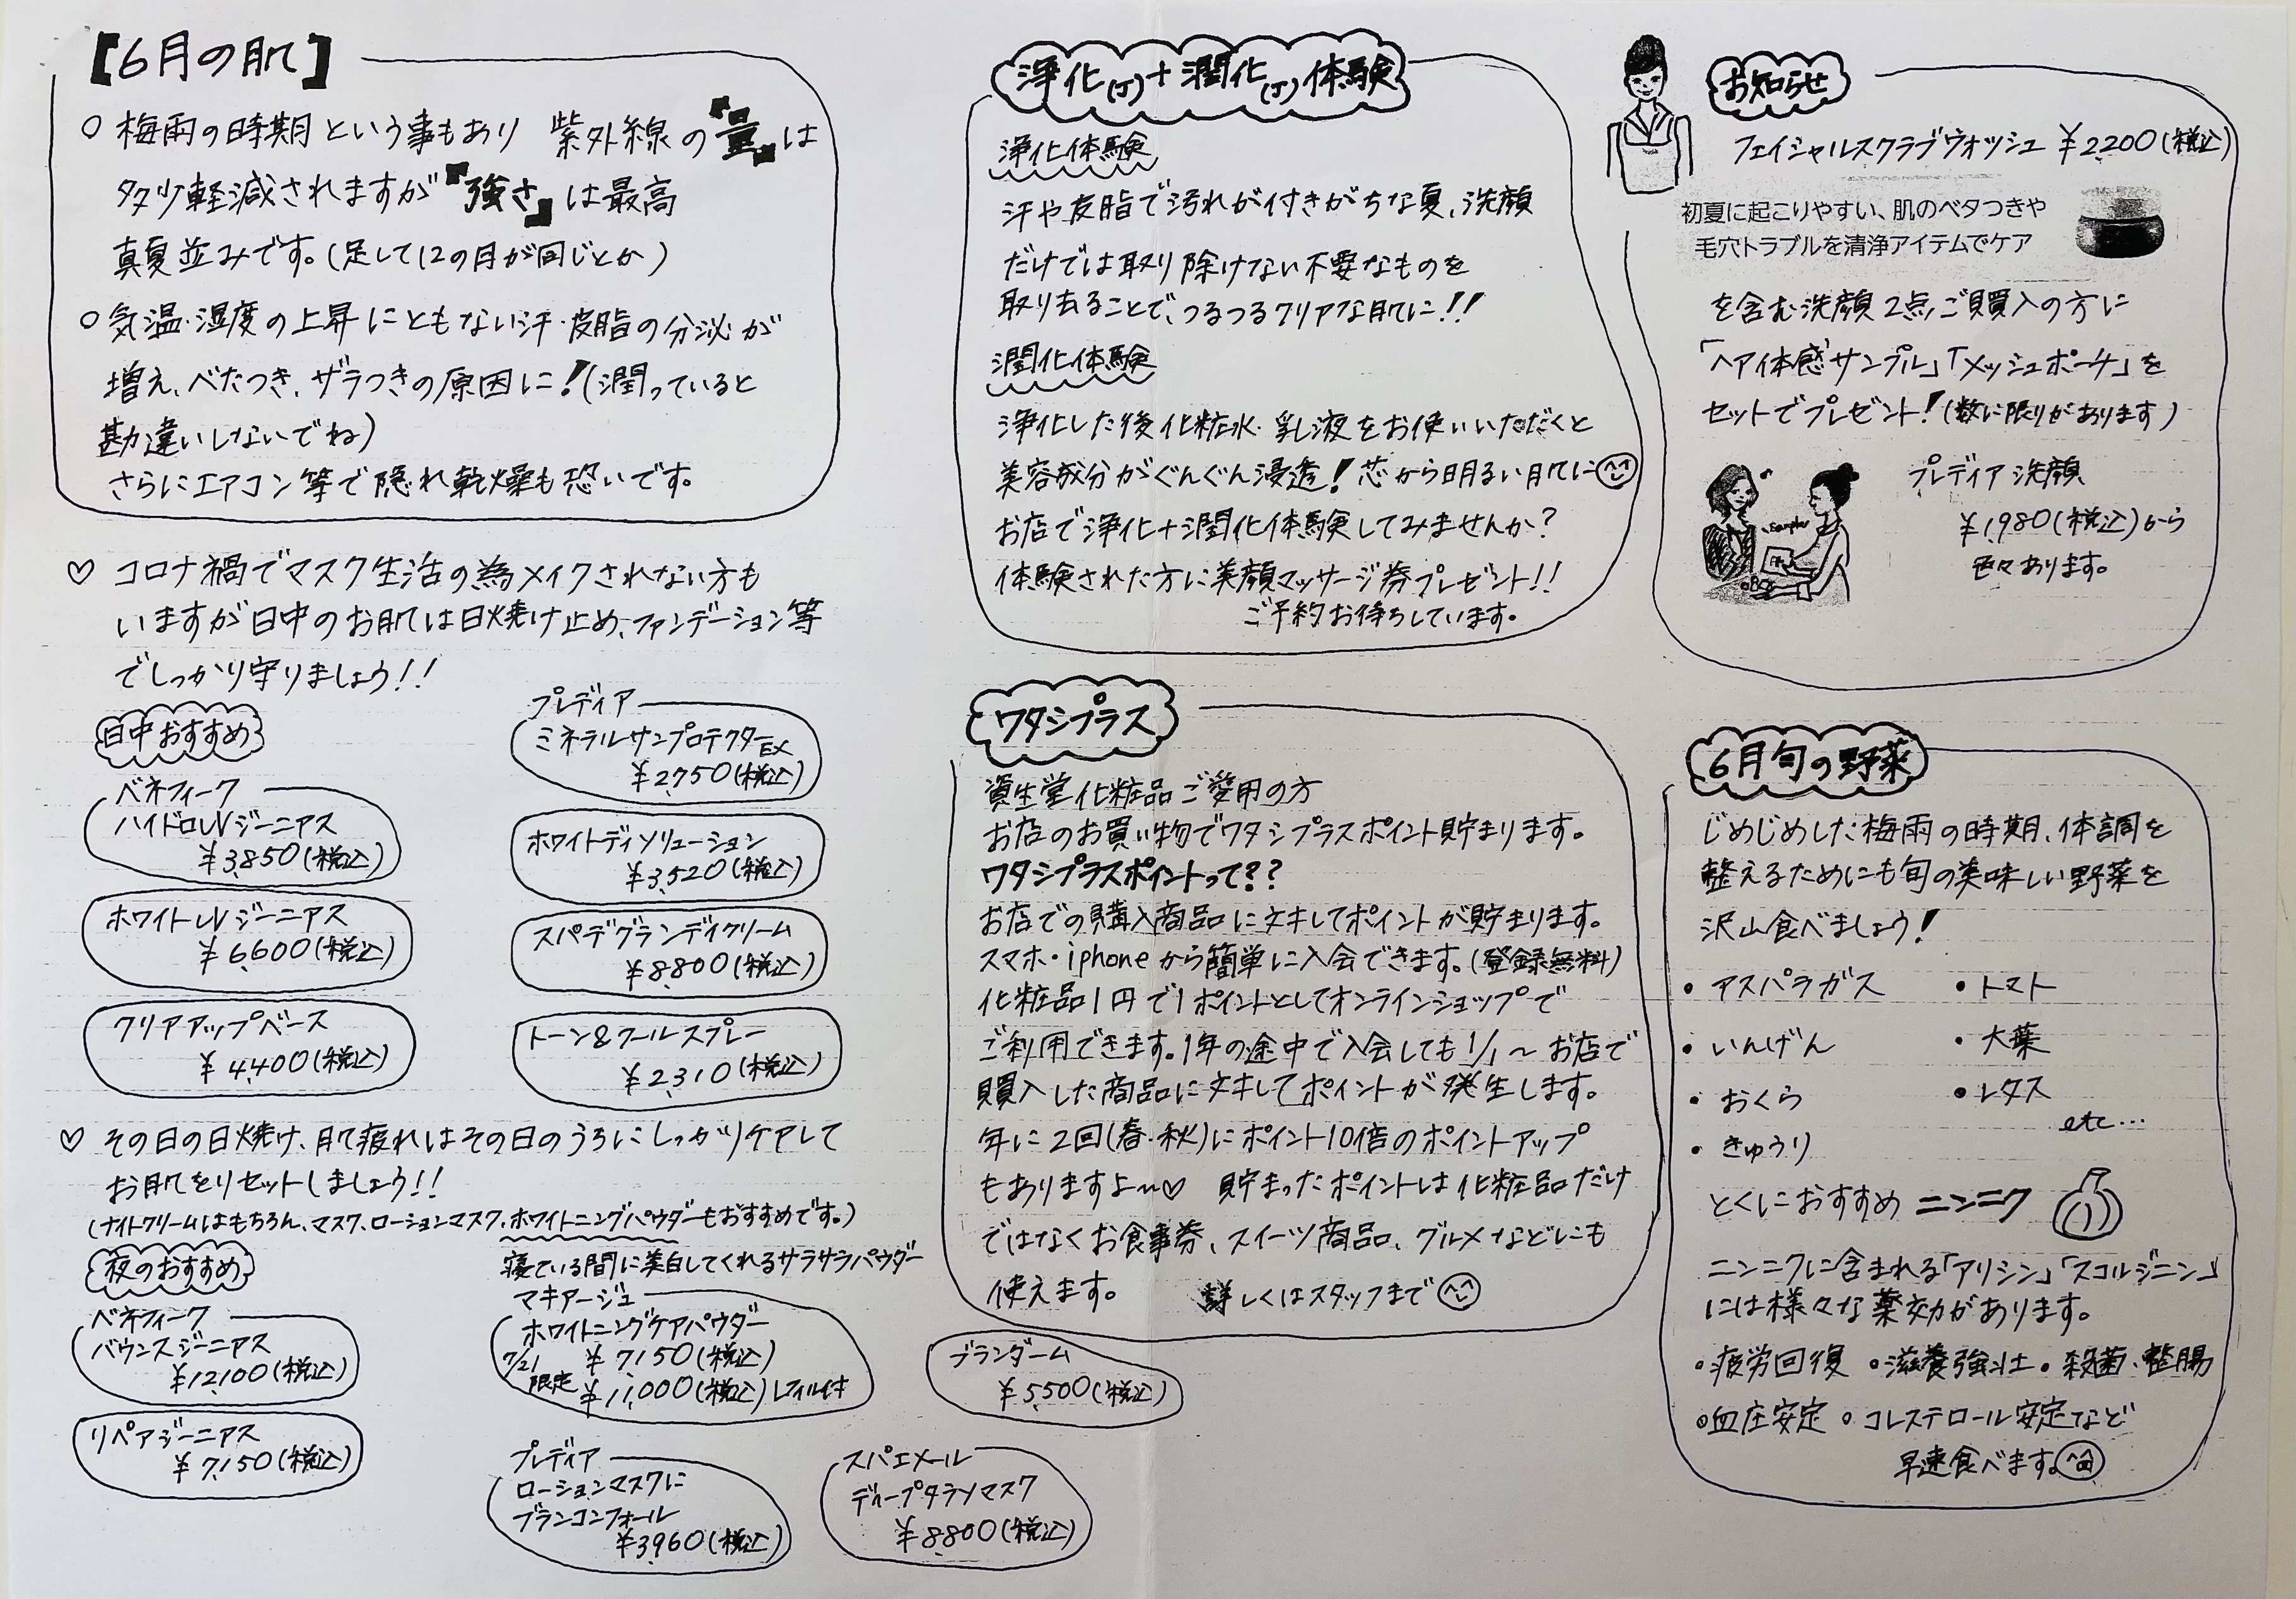 【6月の肌】
○ 梅雨の時期という事もあり 紫外線の『量』は
多少軽減されますが『強さ』は最高
真夏並みです。(足して12の月が同じとか)
○ 気温・湿度の上昇にともない汗・皮脂の分泌が
増え、べたつき、ザラつきの原因に!(潤っていると
勘違いしないでね)
さらにエアコン等で隠れ乾燥も恐いです。
♡ コロナ禍でマスク生活の為メイクされない方も
いますが日中のお肌は日焼け止め、ファンデーション等
でしっかり守りましょう!!
日中おすすめ
ベネフィーク
ハイドロUVジーニアス
¥3,850(税込)
ホワイトUVジーニアス
¥6,600(税込)
クリアアップベース
¥4,400(税込)
プレディア
ミネラルサンプロテクターEX
¥2,750(税込)
ホワイトディソリューション
¥3,520(税込)
スパデグランデイクリーム
¥8,800(税込)
トーン&クールスプレー
¥2,310(税込)
♡ その日の日焼け、肌疲れはその日のうちにしっかりケアして
お肌をリセットしましょう!!
(ナイトクリームはもちろん、マスク、ローションマスク、ホワイトニングパウダーもおすすめです。)
夜のおすすめ
ベネフィーク
バウンスジーニアス
¥12,100(税込)
リペアジーニアス
¥7,150(税込)
寝ている間に美白してくれるサラサラパウダー
マキアージュ
ホワイトニングケアパウダー
¥7,150(税込)
7/21
限定 ¥11,000(税込)レフィル付
プレディア
ローションマスクに
ブランコンフォール
¥3,960(税込)
ブランダーム
¥5,500(税込)
スパエメール
ディープタラソマスク
¥8,800(税込)
浄化(J)+潤化(J)体験
浄化体験
汗や皮脂で汚れが付きがちな夏、洗顔
だけでは取り除けない不要なものを
取り去ることで、つるつるクリアな肌に!!
潤化体験
浄化した後化粧水・乳液をお使いいただくと
美容成分がぐんぐん浸透!芯から明るい肌に
お店で浄化+潤化体験してみませんか?
体験された方に美顔マッサージ券プレゼント!!
ご予約お待ちしています。
ワタシプラス
資生堂化粧品ご愛用の方
お店のお買い物でワタシプラスポイント貯まります。
ワタシプラスポイントって??
お店での購入商品に対してポイントが貯まります。
スマホ・iphoneから簡単に入会できます。(登録無料)
化粧品1円で1ポイントとしてオンラインショップで
ご利用できます。1年の途中で入会しても1/1〜お店で
買入した商品に対してポイントが発生します。
年に2回(春・秋)にポイント10倍のポイントアップ
もありますよ〜♡ 貯まったポイントは化粧品だけ
ではなくお食事券、スイーツ商品、グルメなどにも
使えます。 詳しくはスタッフまで
お知らせ
フェイシャルスクラブウォッシュ ¥2,200(税込)
初夏に起こりやすい、肌のベタつきや
毛穴トラブルを清浄アイテムでケア
を含む洗顔2点ご買入の方に
「ヘア体感サンプル」「メッシュポーチ」を
セットでプレゼント!(数に限りがあります)
プレディア洗顔
¥1,980(税込)から
色々あります。
6月旬の野菜
じめじめした梅雨の時期、体調を
整えるためにも旬の美味しい野菜を
沢山食べましょう!
・アスパラガス ・トマト
・いんげん ・大葉
・おくら ・レタス
・きゅうり etc…
とくにおすすめ ニンニク
ニンニクに含まれる「アリシン」「スコルジニン」
には様々な薬効があります。
・疲労回復 ・滋養強壮 ・殺菌・整腸
・血圧安定 ・コレステロール安定など
早速食べます。